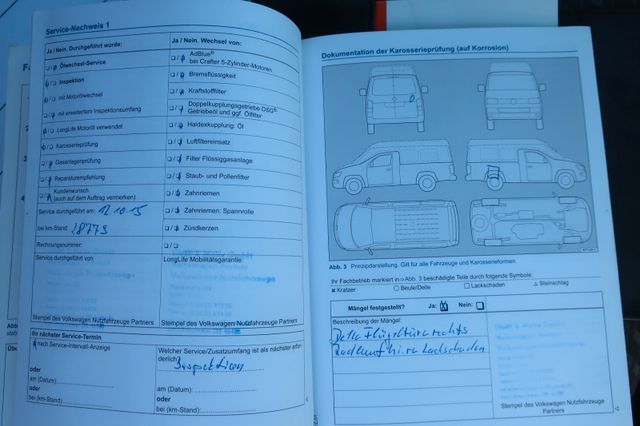 Service-Nachweis 1
Ja / Nein. Durchgeführt wurde:
Ölwechsel-Service
Inspektion
mit Motorölwechsel
mit erweitertem Inspektionsumfang
LongLife Motoröl verwendet
Karosserieprüfung
Gasanlagenprüfung
Reparaturempfehlung
Kundenwunsch
(auch auf dem Auftrag vermerken)
Service durchgeführt am: 12.10.15
bei km-Stand: 28773
Rechnungsnummer:
Service durchgeführt von:
Stempel des Volkswagen Nutzfahrzeuge Partners
Ja / Nein. Wechsel von:
AdBlue®
bei Crafter 5-Zylinder-Motoren
Bremsflüssigkeit
Kraftstofffilter
Doppelkupplungsgetriebe DSG®
Getriebeöl und ggf. Ölfilter
Haldexkupplung: Öl
Luftfiltereinsatz
Filter Flüssiggasanlage
Staub- und Pollenfilter
Zahnriemen
Zahnriemen: Spannrolle
Zündkerzen
LongLife Mobilitätsgarantie:
Stempel des Volkswagen Nutzfahrzeuge Partners
Ihr nächster Service-Termin
nach Service-Intervall-Anzeige
oder
am (Datum):
oder
bei (km-Stand):
Welcher Service/Zusatzumfang ist als nächster erforderlich?
Inspektion
am (Datum):
oder
bei (km-Stand):
Dokumentation der Karosserieprüfung (auf Korrosion)
Abb. 3 Prinzipdarstellung. Gilt für alle Fahrzeuge und Karosserieformen.
Ihr Fachbetrieb markiert in ⇒ Abb. 3 beschädigte Teile durch folgende Symbole:
× Kratzer ○ Beule/Delle □ Lackschaden △ Steinschlag
Mängel festgestellt? Ja: Nein:
Beschreibung der Mängel:
Delle Flügeltüre rechts
Radlauf hi. re Lackschaden
Stempel des Volkswagen Nutzfahrzeuge
Partners